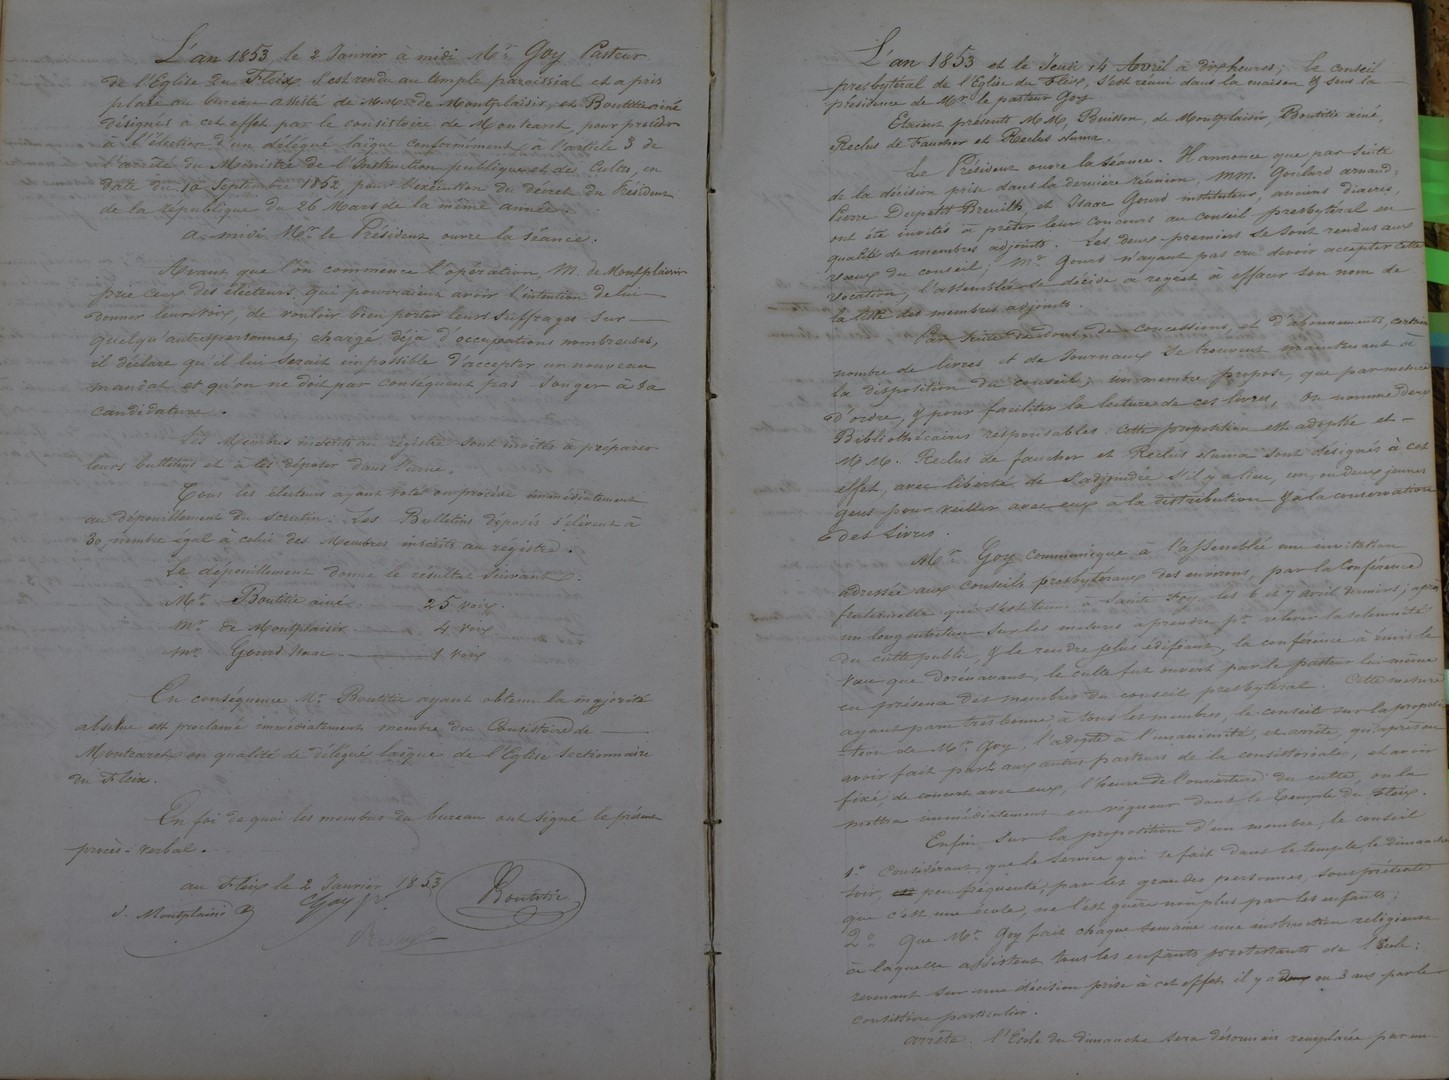 L'an 1853, le 2 Janvier à midi Mr Goy Pasteur
de l'Eglise du Fleix s'est rendu au temple paroissial et a pris
place au bureau assisté de MM. de Montplaisir, et Boutitie ainé
désignés à cet effet par le consistoire de Montcaret, pour procéder
à l'élection d'un délégué laïque conformément à l'article 3 de
l'arrêté du Ministre de l'Instruction publique et des Cultes, en
date du 10 Septembre 1852, pour l'exécution du décret du Président
de la république du 26 Mars de la même année.
a midi Mr le Président ouvre la séance.
Avant que l'on commence l'opération, M. de Montplaisir
prie ceux des électeurs qui pourraient avoir l'intention de lui
donner leurs voix, de vouloir bien porter leurs suffrages sur
quelqu'autre personne; chargé déjà d'occupations nombreuses,
il déclare qu'il lui serait impossible d'accepter un nouveau
mandat et qu'on ne doit par conséquent pas songer à sa
candidature.
Les Membres inscrits au registre sont invités à préparer
leurs bulletins et à les déposer dans l'urne.
Tous les électeurs ayant voté on procède immédiatement
au dépouillement du scrutin. Les Bulletins déposés s'élèvent à
30 nombre égal à celui des Membres inscrits au registre.
Le dépouillement donne le résultat suivant:
Mr Boutitie ainé 25 voix.
Mr de Montplaisir 4 voix
Mr Gourd Isaac 1 voix
En conséquence Mr Boutitie ayant obtenu la majorité
absolue est proclamé immédiatement membre du Consistoire de
Montcaret en qualité de délégué laïque de l'Eglise sectionnaire
du Fleix.
En foi de quoi les membres du bureau ont signé le présent
procès-verbal.
au Fleix le 2 Janvier 1853
d. Montplaisir Goy pr. Boutitie
L'an 1853 et le Jeudi 14 Avril à dix heures; Le Conseil
presbytéral de l'Eglise du Fleix, s'est réuni dans la maison & sous la
présidence de Mr le pasteur Goy
Etaient présents MM, Buisson, de Montplaisir, Boutitie ainé,
Reclus de Faucher et Reclus Numa.
Le Président ouvre la séance. Il annonce que par suite
de la décision prise dans la dernière réunion, MM. Goulard arnaud,
Pierre Dupetit Breuilh, et Isaac Gourd instituteur, anciens diacres,
ont été invités à prêter leur concours au conseil presbytéral en
qualité de membres adjoints. Les deux premiers se sont rendus aux
voeux du conseil; Mr Gourd n'ayant pas cru devoir accepter cette
vocation, l'assemblée se décide à regret à effacer son nom de
la liste des membres adjoints.
Par suite de dons, de concessions, et d'abonnements, certain
nombre de livres et de Journaux se trouvent maintenant à
la disposition du conseil; un membre propose, que par mesure
d'ordre, & pour faciliter la lecture de ces livres, on nomme deux
Bibliothécaires responsables. cette proposition est adoptée et
MM. Reclus de faucher et Reclus Numa sont désignés à cet
effet, avec liberté de s'adjoindre s'il y a lieu, un, ou deux jeunes
gens pour veiller avec eux à la distribution & à la conservation
des Livres.
Mr Goy communique à l'assemblée une invitation
adressée aux Conseils presbytéraux des environs, par la Conférence
fraternelle qui s'est tenue à Sainte Foy, les 6 et 7 avril derniers; après
un long entretien sur les mesures à prendre pr relever la solennité
du culte public, & le rendre plus édifiant, la conférence a émis le
voeu que dorénavant, le culte fut ouvert par le pasteur lui-même
en présence des membres du conseil presbytéral. Cette mesure
ayant paru très bonne à tous les membres, le conseil sur la proposi
-tion de Mr Goy, l'adopte à l'unanimité, et arrête, qu'après en
avoir fait part aux autres pasteurs de la consistoriale, et avoir
fixé, de concert avec eux, l'heure de l'ouverture du culte, on la
mettra immédiatement en vigueur dans le Temple du Fleix.
Enfin sur la proposition d'un membre, le conseil
1° Considérant, que le service qui se fait dans le temple, le dimanche
soir, peu fréquenté, par les grandes personnes, sous prétexte
que c'est une école, ne l'est guère non plus par les enfants;
2° Que Mr Goy fait chaque semaine une instruction religieuse
à laquelle assistent tous les enfants protestants de l'Ecole:
revenant sur une décision prise à cet effet, il y a deux ou 3 ans par le
consistoire particulier.
arrête. l'Ecole du dimanche sera désormais remplacée par un